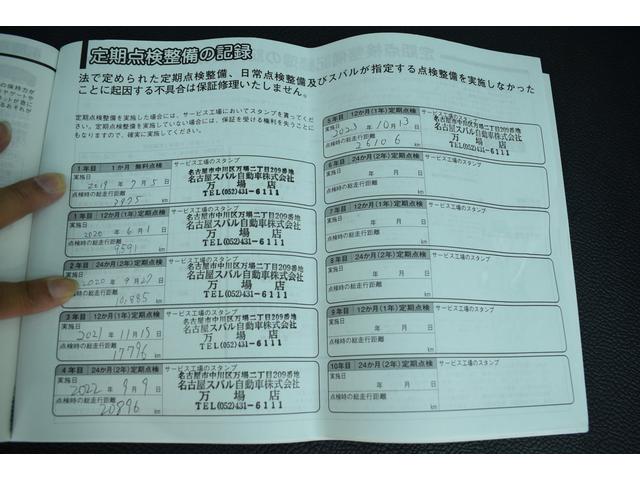 定期点検整備の記録
法で定められた定期点検整備、日常点検整備及びスバルが指定する点検整備を実施しなかった
ことに起因する不具合は保証修理いたしません。
定期点検整備を実施した場合には、サービス工場においてスタンプを貰ってくだ
さい。定期点検整備を実施していない場合には、保証を受ける権利を失うことに
もなりますので、確実に実施してください。
1年目 1か月 無料点検 サービス工場のスタンプ
実施日
2019年7月5日
点検時の総走行距離
2875 km
名古屋市中川区万場二丁目209番地
名古屋スバル自動車株式会社
万場店
TEL(052)431-6111
1年目 12か月(1年)定期点検 サービス工場のスタンプ
実施日
2020年6月1日
点検時の総走行距離
9591 km
名古屋市中川区万場二丁目209番地
名古屋スバル自動車株式会社
万場店
TEL(052)431-6111
2年目 24か月(2年)定期点検 サービス工場のスタンプ
実施日
2020年9月27日
点検時の総走行距離
10,885 km
名古屋市中川区万場二丁目209番地
名古屋スバル自動車株式会社
万場店
TEL(052)431-6111
3年目 12か月(1年)定期点検 サービス工場のスタンプ
実施日
2021年11月15日
点検時の総走行距離
17796 km
名古屋市中川区万場二丁目209番地
名古屋スバル自動車株式会社
万場店
TEL(052)431-6111
4年目 24か月(2年)定期点検 サービス工場のスタンプ
実施日
2022年9月9日
点検時の総走行距離
20896 km
名古屋市中川区万場二丁目209番地
名古屋スバル自動車株式会社
万場店
TEL(052)431-6111
5年目 12か月(1年)定期点検 サービス工場のスタンプ
実施日
2023年10月13日
点検時の総走行距離
26106 km
名古屋市中川区万場二丁目209番地
名古屋スバル自動車株式会社
万場店
TEL(052)431-6111
6年目 24か月(2年)定期点検 サービス工場のスタンプ
実施日
年 月 日
点検時の総走行距離
km
7年目 12か月(1年)定期点検 サービス工場のスタンプ
実施日
年 月 日
点検時の総走行距離
km
8年目 24か月(2年)定期点検 サービス工場のスタンプ
実施日
年 月 日
点検時の総走行距離
km
9年目 12か月(1年)定期点検 サービス工場のスタンプ
実施日
年 月 日
点検時の総走行距離
km
10年目 24か月(2年)定期点検 サービス工場のスタンプ
実施日
年 月 日
点検時の総走行距離
km